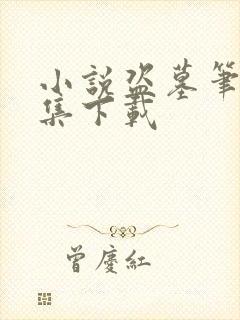 小說盜墓筆
集下載
曾慶紅